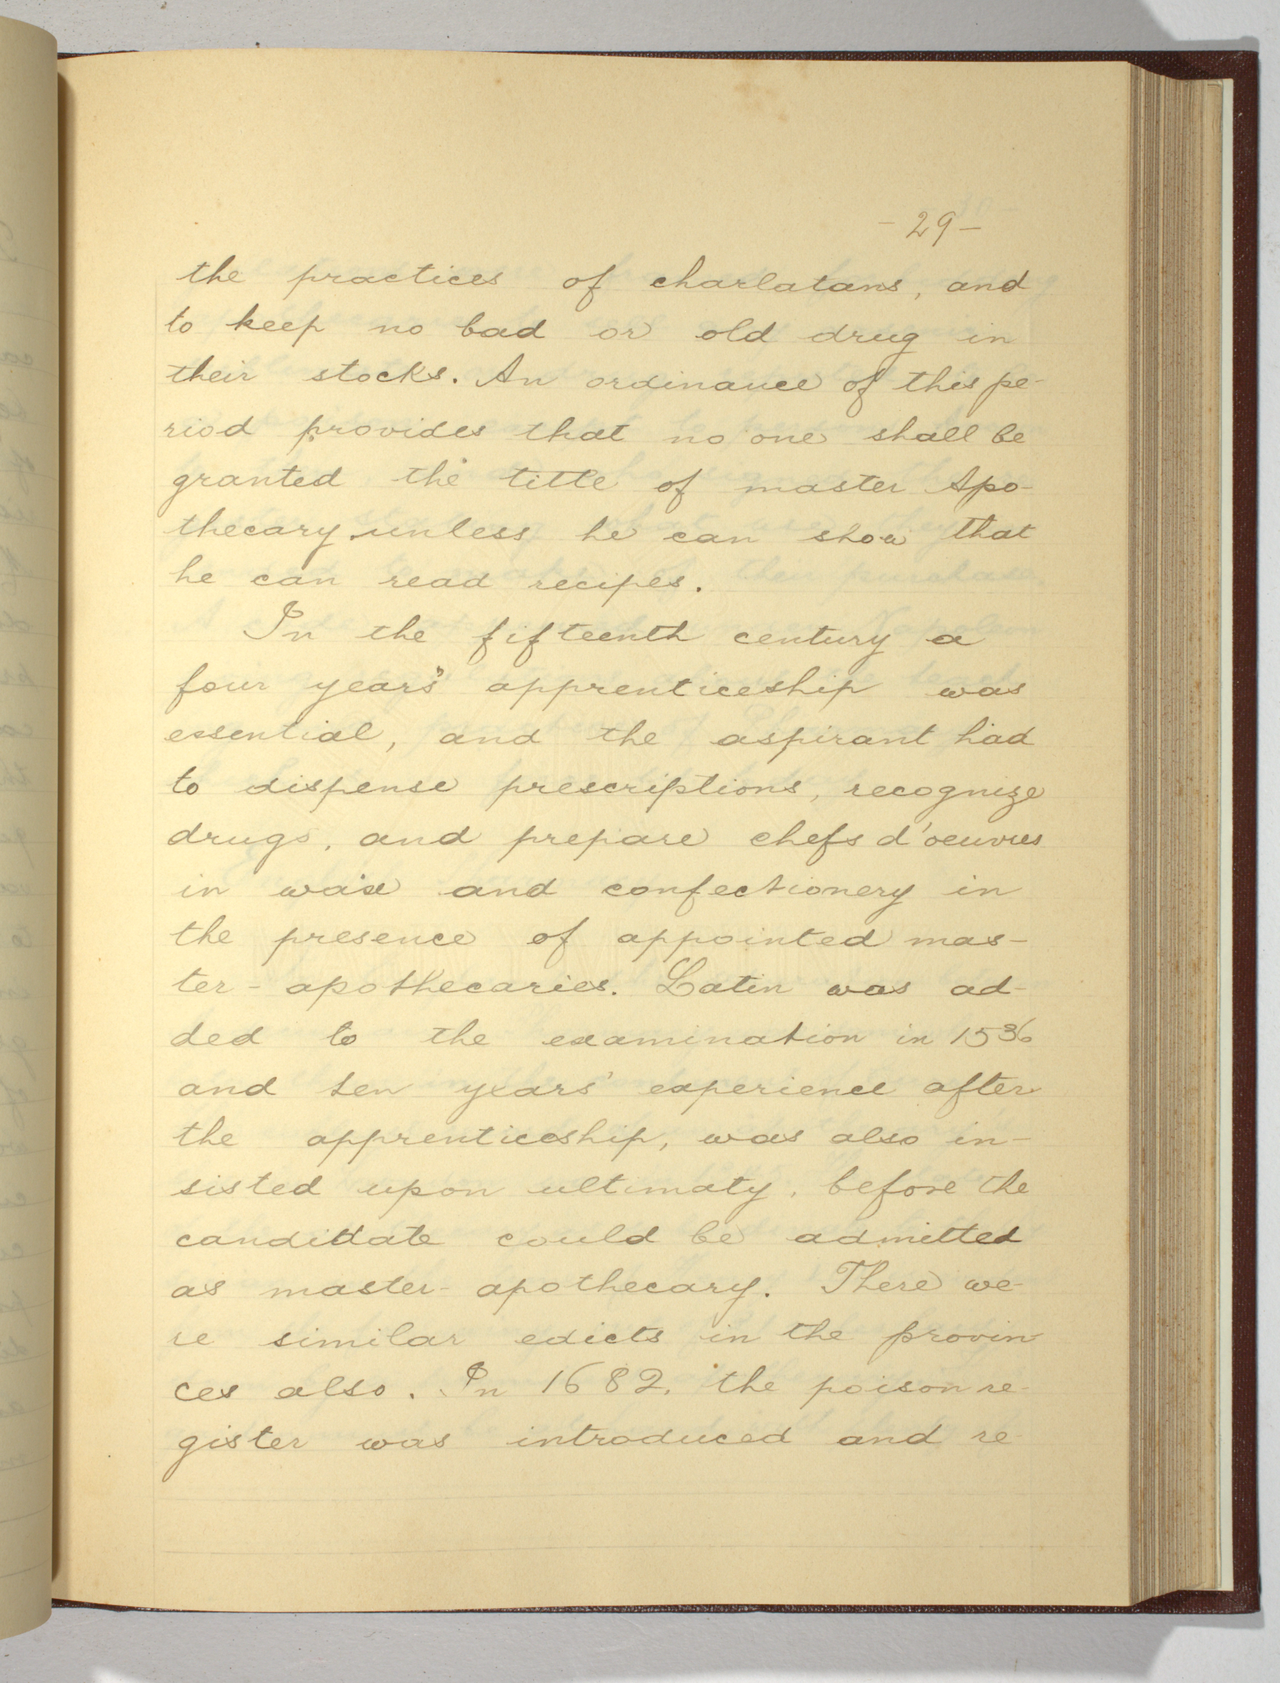 - 29 -
the practices of charlatans, and
to keep no bad or old drug in
their stocks. An ordinance of this pe-
riod provides that no one shall be
granted the title of master Apo-
thecary unless he can show that
he can read recipes.
In the fifteenth century a
four years' apprenticeship was
essential, and the aspirant had
to dispense prescriptions, recognize
drugs, and prepare chefs d'oeuvres
in wax and confectionery in
the presence of appointed mas-
ter-apothecaries. Latin was ad-
ded to the examination in 1536
and ten years' experience after
the apprenticeship, was also in-
sisted upon ultimaty, before the
candidate could be admitted
as master-apothecary. There we-
re similar edicts in the provin
ces also. In 1682, the poison re-
gister was introduced and re-